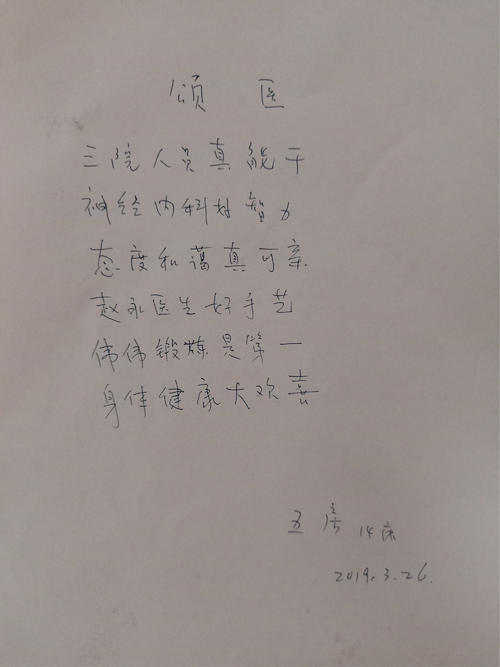 颂 医
三院人员真能干
神经内科好智力
态度和蔼真可亲
赵永医生好手艺
伟伟锻炼是第一
身体健康大欢喜
五房 14床
2019.3.26.